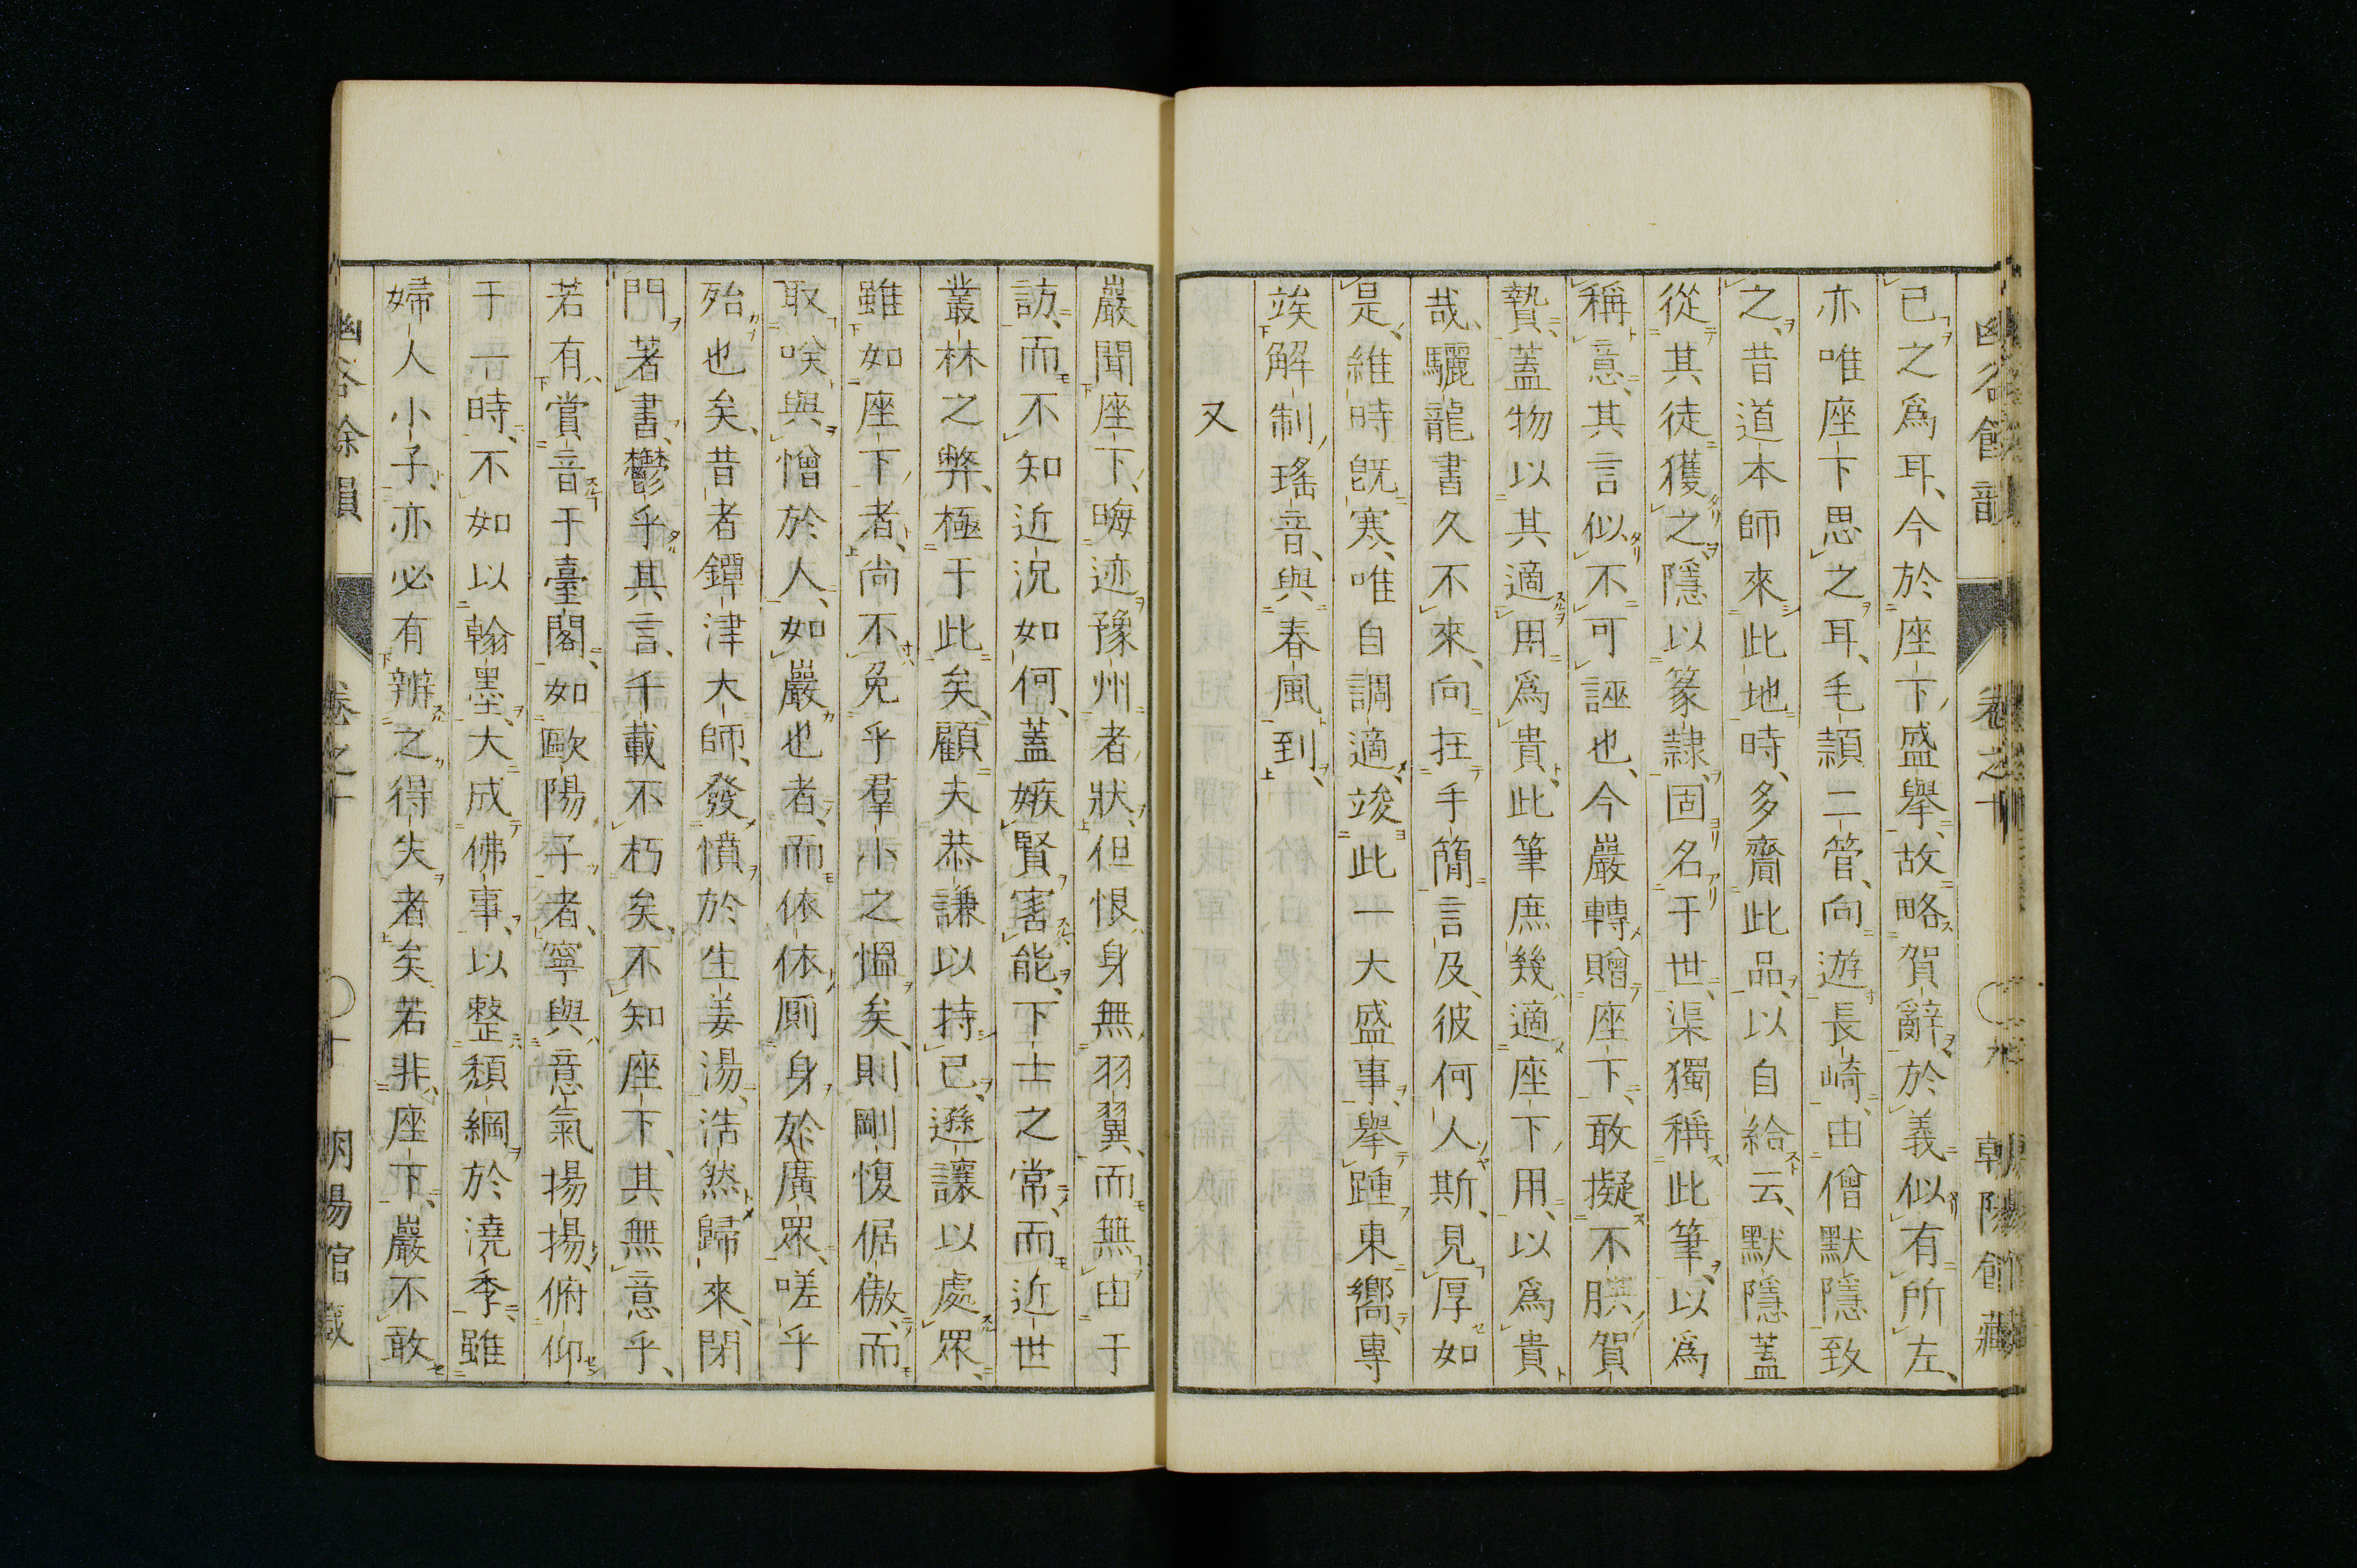 已之爲耳、今於座下盛擧、故略賀辭於義似有所左、
亦唯座下思之耳、毛頴二管、向遊長崎、由僧默隱致
之、昔道本師來此地時、多齎此品、以自給云、默隱蓋
從其徒獲之、隱以篆隷、固名于世、渠獨稱此筆、以爲
稱意、其言似不可誣也、今巖轉贈座下、敢擬不腆賀
贄、蓋物以其適用爲貴、此筆庶幾適座下用、以爲貴
哉、驪龍書久不來、向抂手簡、言及彼何人斯、見厚如
是、維時旣寒、唯自調適、竣此一大盛事、擧踵東嚮、專
竢解制瑤音、與春風到、
又
巖聞座下、晦迹豫州者狀、但恨身無羽翼、而無由于
訪、而不知近況如何、蓋嫉賢害能、下士之常、而近世
叢林之弊、極于此矣、顧夫恭謙以持己、遜讓以處眾、
雖如座下者、尚不免乎羣小之慍矣、則剛愎倨傲、而
取唉與憎於人、如巖也者、而依依厠身於廣眾、嗟乎
殆也矣、昔者鐔津大師、發憤於生姜湯、浩然歸來、閉
門著書、鬱乎其言、千載不朽矣、不知座下、其無意乎、
若有賞音于臺閣、如歐陽子者、寧與意氣揚揚、俯仰
于一時、不如以翰墨、大成佛事、以整頽綱於澆季、雖
婦人小子、亦必有辨之得失者矣、若非座下、巖不敢
幽谷餘韻 卷之十 ○十 朝陽館藏